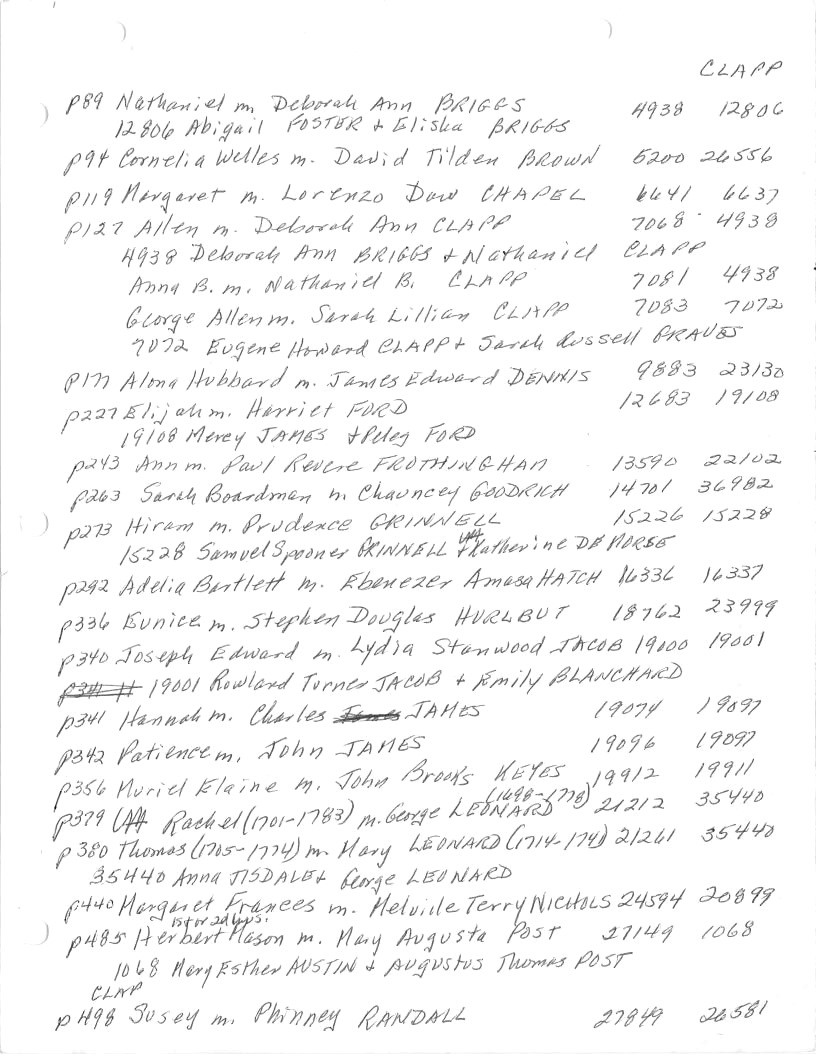 CLAPP
p89 Nathaniel m. Deborah Ann BRIGGS 4938 12806
12806 Abigail FOSTER + Elisha BRIGGS
p94 Cornelia Welles m. David Tilden BROWN 5200 26556
p119 Margaret m. Lorenzo Dow CHAPEL 6641 6637
p127 Allen m. Deborah Ann CLAPP 7068 4938
4938 Deborah Ann BRIGGS + Nathaniel CLAPP
Anna B. m. Nathaniel B. CLAPP 7081 4938
George Allen m. Sarah Lillian CLAPP 7083 7072
7072 Eugene Howard CLAPP + Sarah Russell GRAVES
p177 Alona Hubbard m. James Edward DENNIS 9883 23130
p227 Elijah m. Harriet FORD 12683 19108
19108 Mercy JAMES + Peleg FORD
p243 Ann m. Paul Revere FROTHINGHAM 13590 22102
p263 Sarah Boardman m Chauncey GOODRICH 14701 36982
p273 Hiram m. Prudence GRINNELL 15226 15228
15228 Samuel Spooner GRINNELL + Katherine DE MORSE
p292 Adelia Bartlett m. Ebenezer Amasa HATCH 16336 16337
p336 Eunice m. Stephen Douglas HURLBUT 18762 23999
p340 Joseph Edward m. Lydia Stanwood JACOB 19000 19001
19001 Rowland Turner JACOB + Emily BLANCHARD
p341 Hannah m. Charles JAMES 19074 19097
p342 Patience m. John JAMES 19096 19097
p356 Muriel Elaine m. John Brooks KEYES 19912 19911
p379 Rachel (1701-1783) m. George LEONARD (1698-1778) 21212 35440
p380 Thomas (1705-1774) m. Mary LEONARD (1714-174) 21261 35440
35440 Anna TISDALE + George LEONARD
p440 Margaret Frances m. Melville Terry NICHOLS 24594 20899
1st or 2d
p485 Herbert Mason m. Mary Augusta POST 27149 1068
1068 Mary Esther AUSTIN + Augustus Thomas POST
CLAP
p498 Susey m. Phinney RANDALL 27849 26581